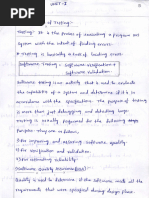 UNIT-I
of Testing:-
Testing:- It is the process of executing a program or
system with the intent of finding errors.
* Testing is basically a task of locating errors.
Software Testing = Software verification +
Software validation.
Software testing is an activity that is used to evaluate
the capability of a system and determines if it is
in accordance with the specifications. The purpose of testing
is more than just debugging and detecting steps
testing is usually performed for the following steps
purpose. They are as follows.
1) For improving and assuring software quality.
2) For verifying and validating software.
3) For estimating reliability.
(Software Quality Assurance (SQA))
Quality is said to determine if the software meets all the
requirements that were specified during design phase.